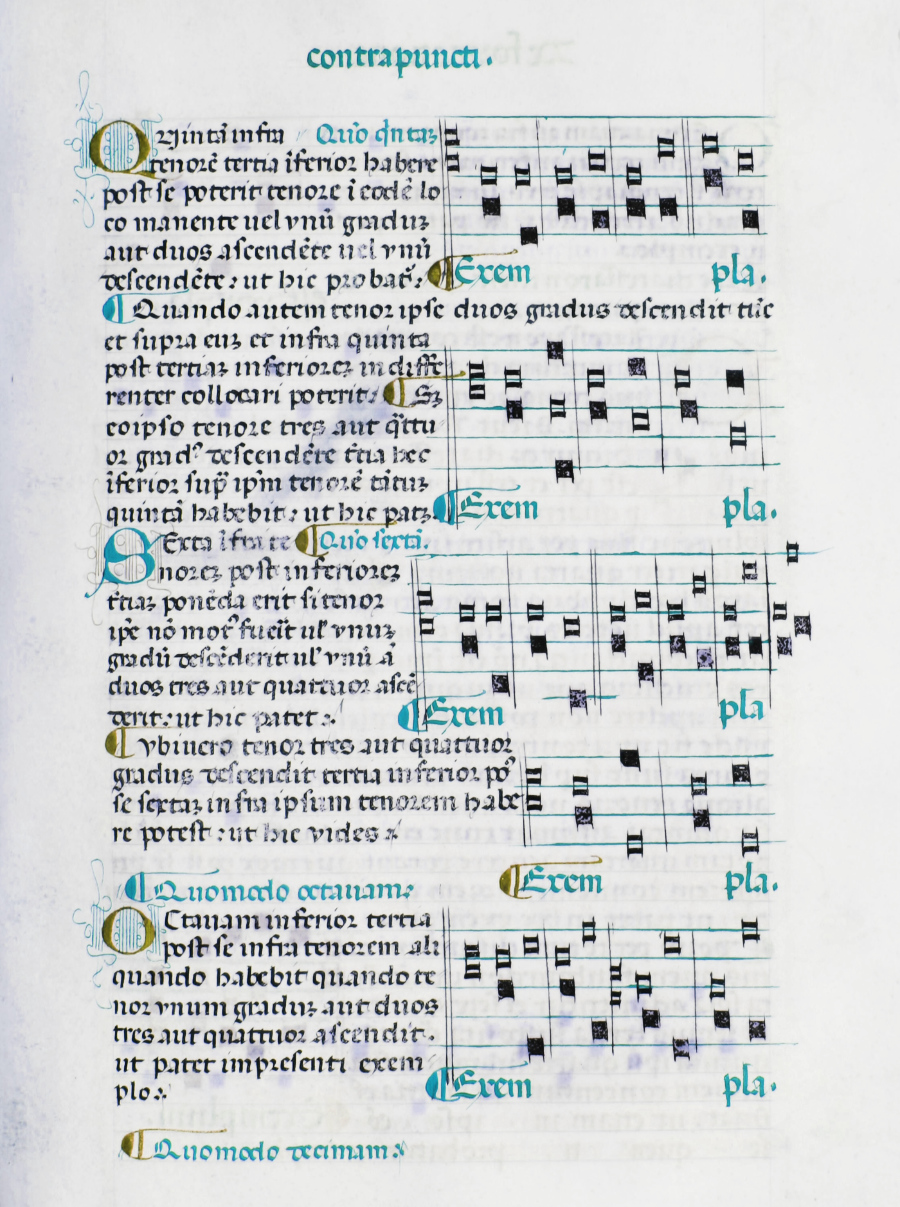 contrapuncti.
QUintā infra Quō qͥntaꝫ
tenorē tertia īferior habere
post se poterit tenore ī eodē lo
co manente uel vnū graduꝫ
aut duos ascendēte uel vnū
descendēte: ut hic probat̄: Exem pla.
Quando autem tenor ipse duos gradus descendit tūc
et supra euꝫ et infra quinta
post tertiaꝫ inferioreꝫ indiffe
renter collocari poterit: Sꝫ
eoipso tenore tres aut qͣttu
or grad⁹ descendēte t̄tia hec
īferior sup̄ ip̄m tenorē tātuꝫ
quintā habebit: ut hic patꝫ. Exem pla.
SExta īfra te Quō sexta.
noreꝫ post inferioreꝫ
t̄tiaꝫ ponēda erit si tenor
ip̄e nō mot⁹ fuerit ul̓ vnuꝫ
gradū descēderit ul̓ vnū ā
duos tres aut quattuor ascē
derit: ut hic patet: Exem pla
Vbi uero tenor tres aut quattuor
gradus descendit tertia inferior po⁹
se sextaꝫ infra ipsum tenorem habe
re potest: ut hic vides: Exem pla.
Quomodo octauam:
OCtauam inferior tertia
post se infra tenorem ali
quando habebit quando te
nor vnum graduꝫ aut duos
tres aut quattuor ascendit.
ut patet impresenti exem
plo: Exem pla.
Quomodo decimam: